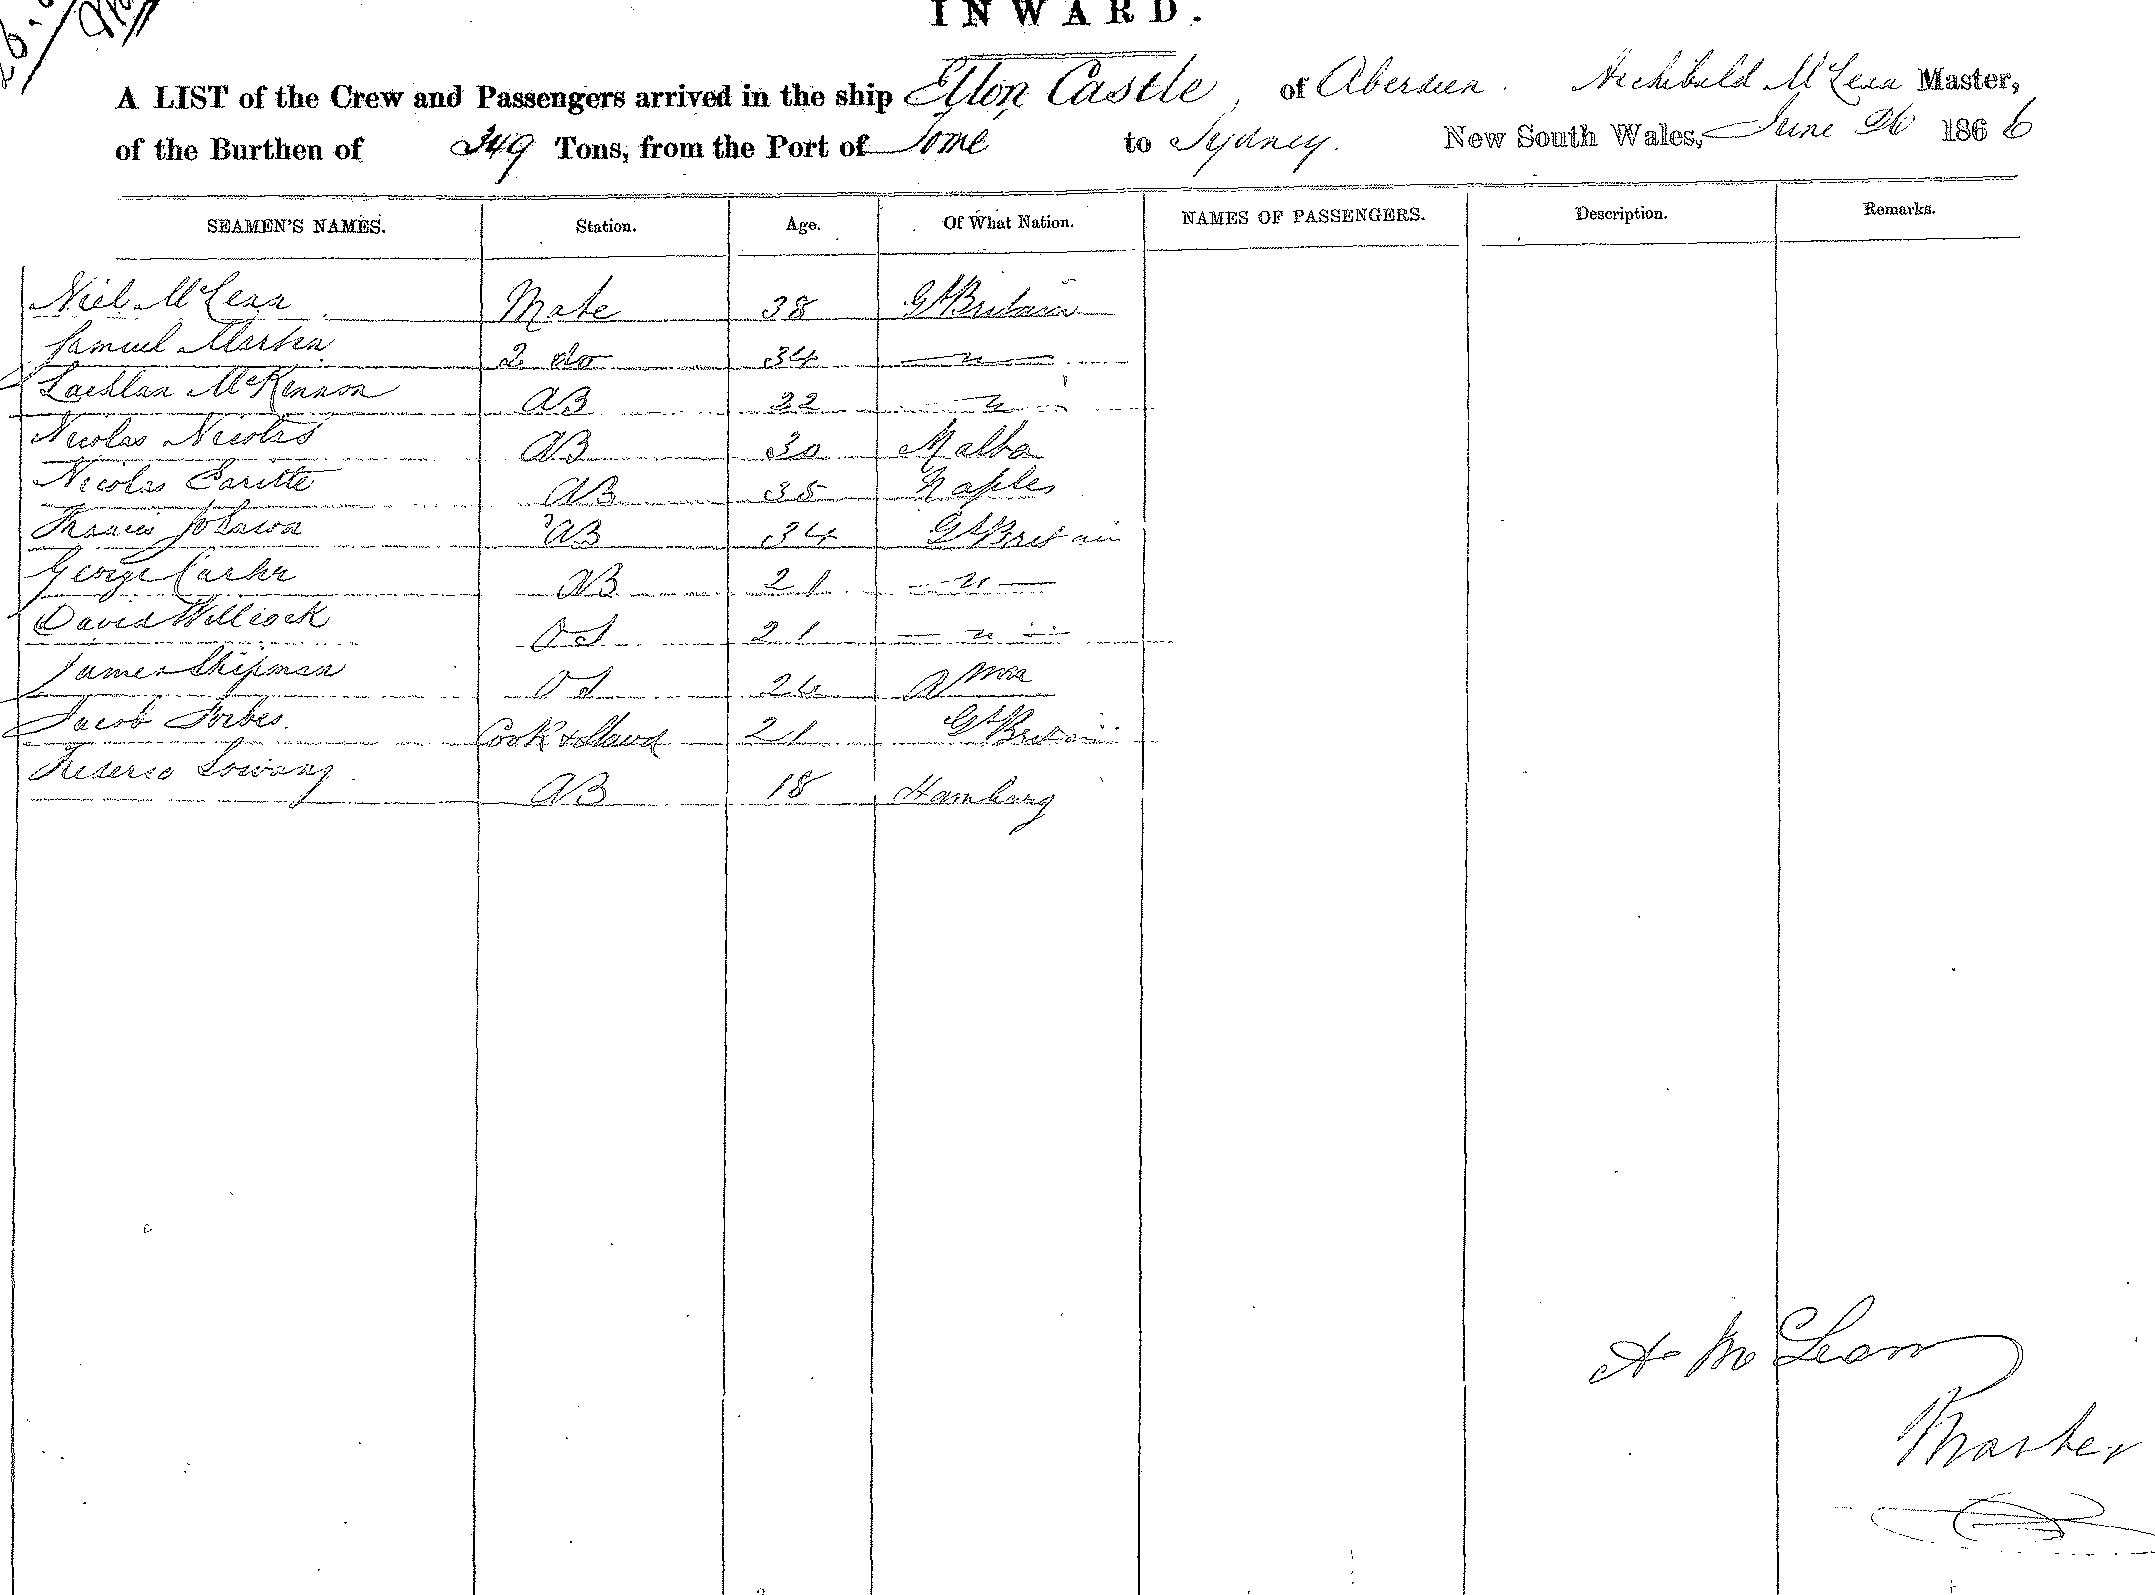 INWARD.
A LIST of the Crew and Passengers arrived in the ship Ellon Castle of Aberdeen. Archibald McLean Master,
of the Burthen of 349 Tons, from the Port of Tome to Sydney. New South Wales, June 26 1866
SEAMEN'S NAMES. Station. Age. Of What Nation. NAMES OF PASSENGERS. Description. Remarks.
Niel McLean Mate 38 Gt Britain
Samuel Martin 2 do 34 — " —
Lachlan McKennon AB 22 "
Nicolas Nicolas AB 30 Malta
Nicolas AB 35 Naples
Francis AB 34 Gt Britain
George Carter AB 21 — " —
David Willcock Od 21 — " —
James Shipman Od 24
Jacob Forbes. Cook & Stewd 21 Gt Britain
AB 18 Hamburg
A McLean
Master